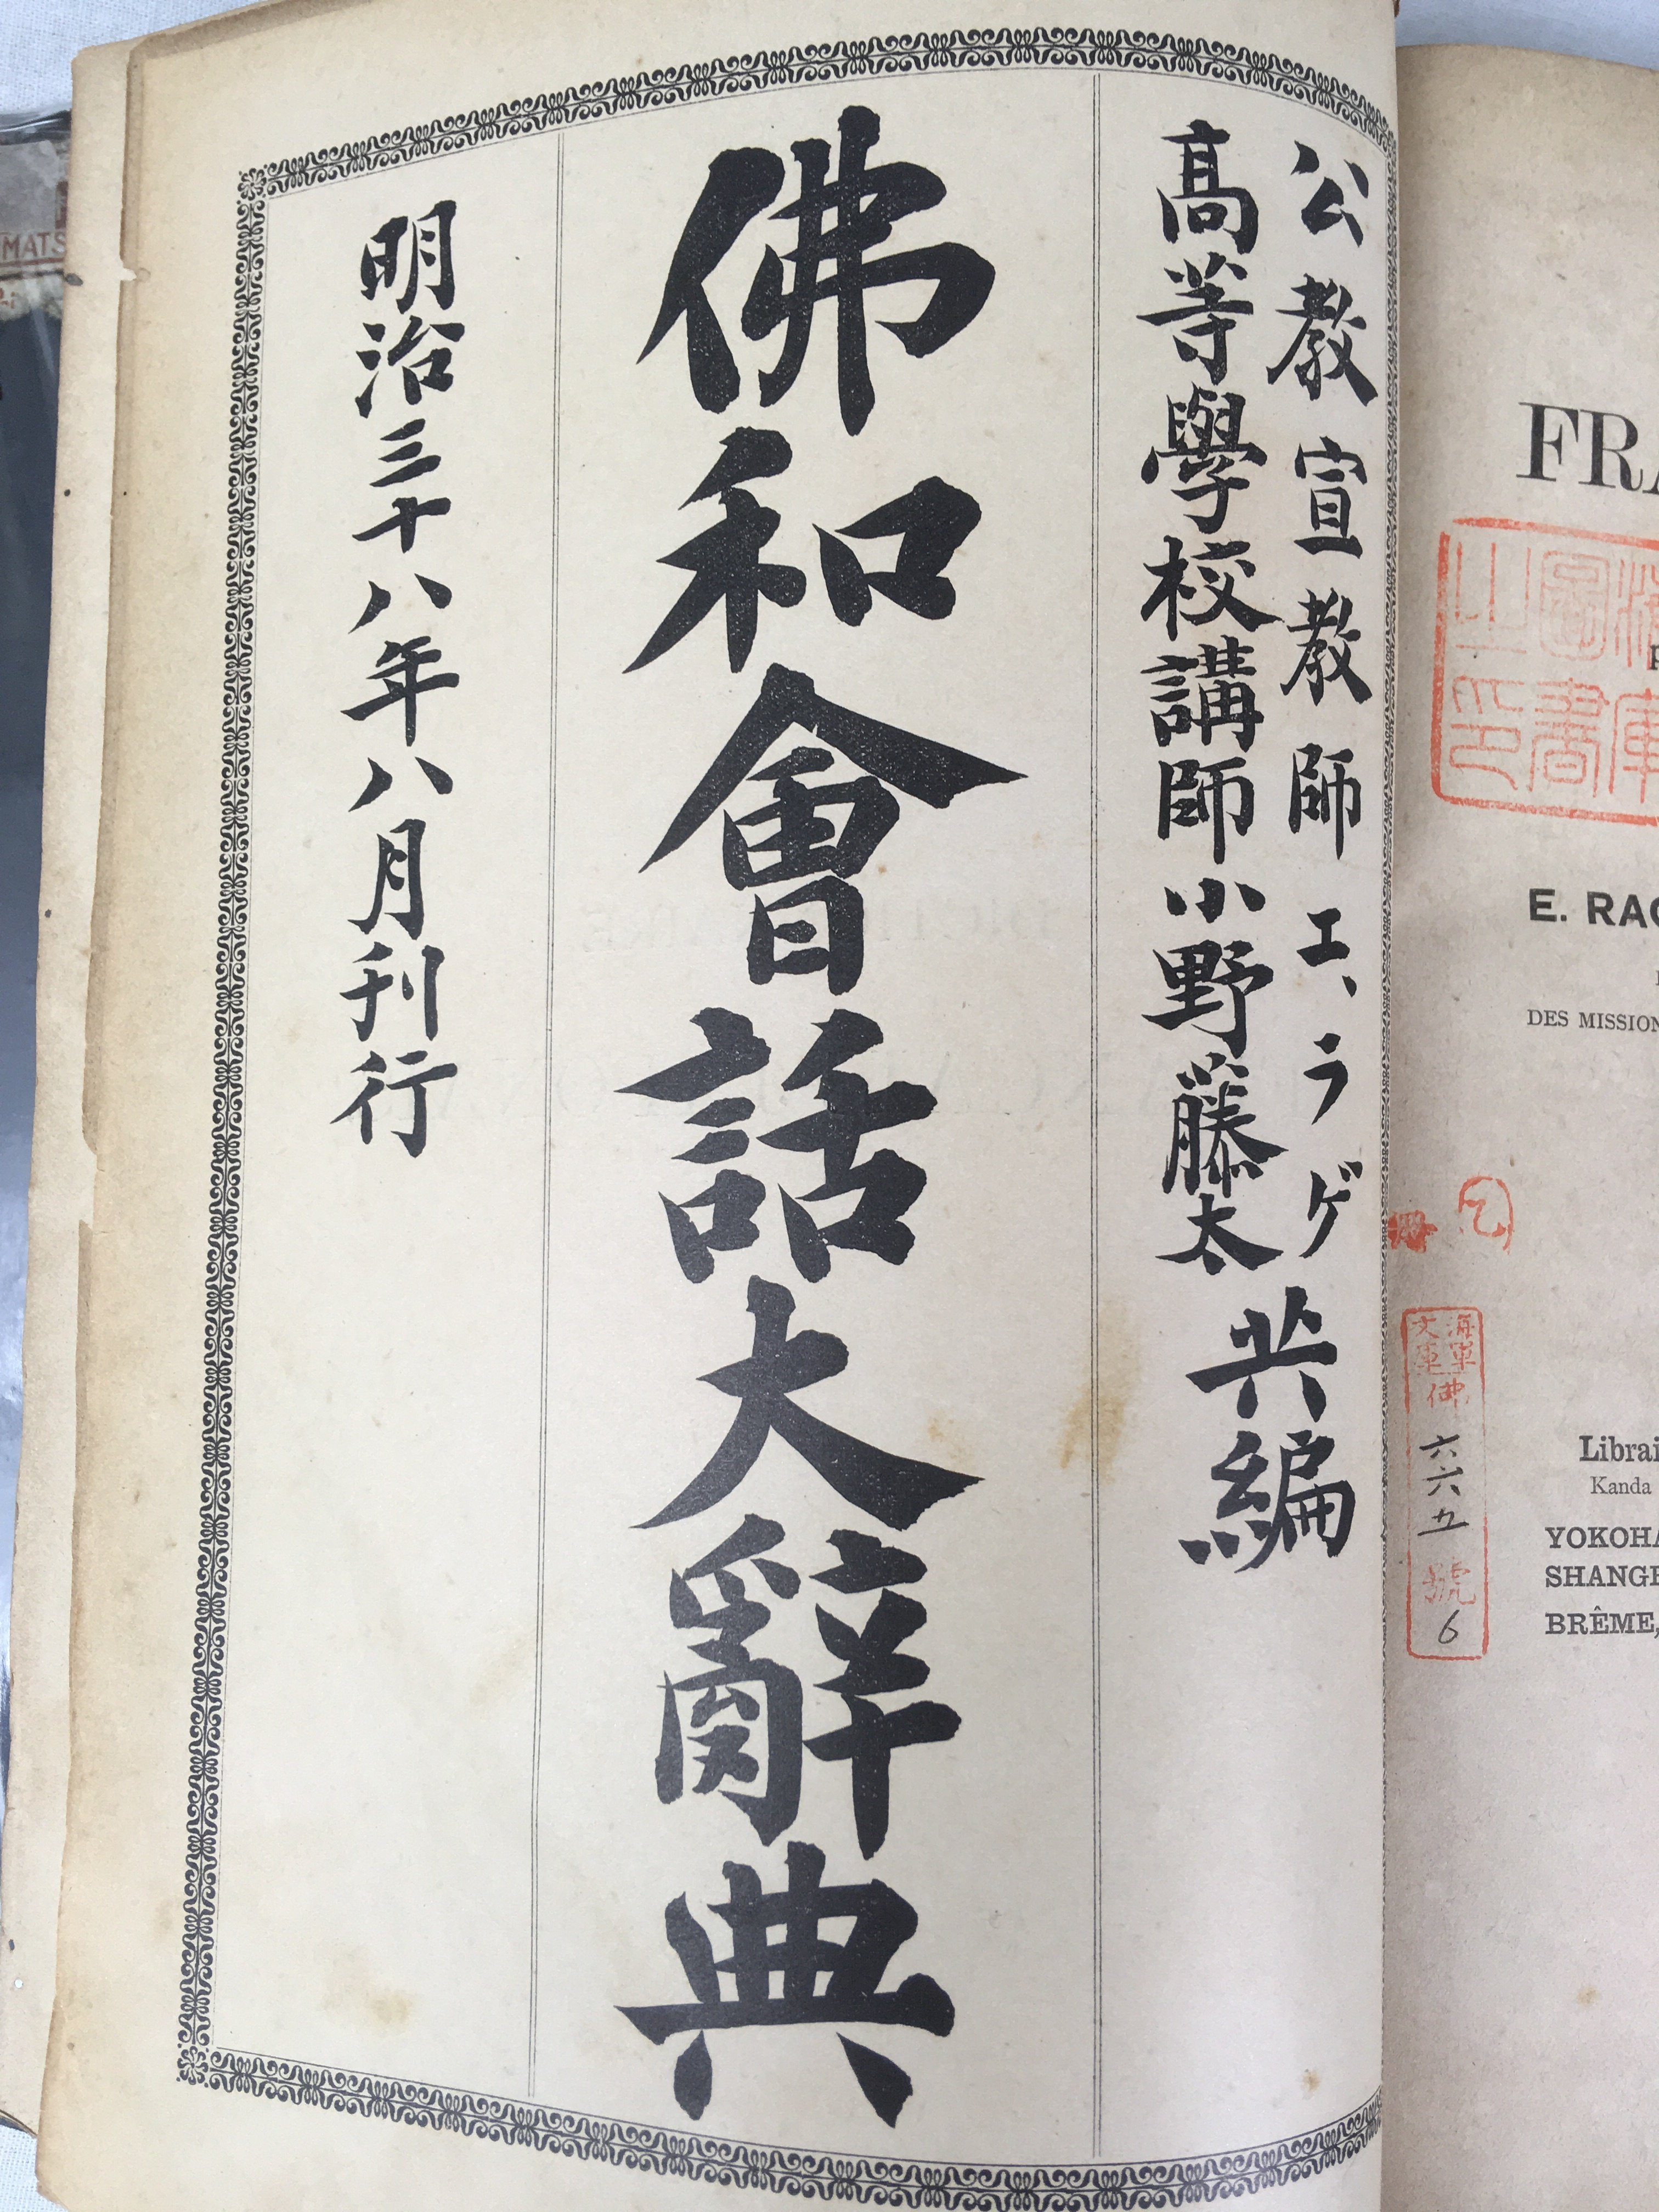 公教宣教師エ、ラゲ
高等學校講師小野藤太
共編
佛和會話大辭典
明治三十八年八月刊行
FRA
E. RAG
DES MISSION
Librai
Kanda
YOKOHA
SHANGH
BRÊME,
海軍
文庫
佛
六六五
號
6
圖書
之印
MATS